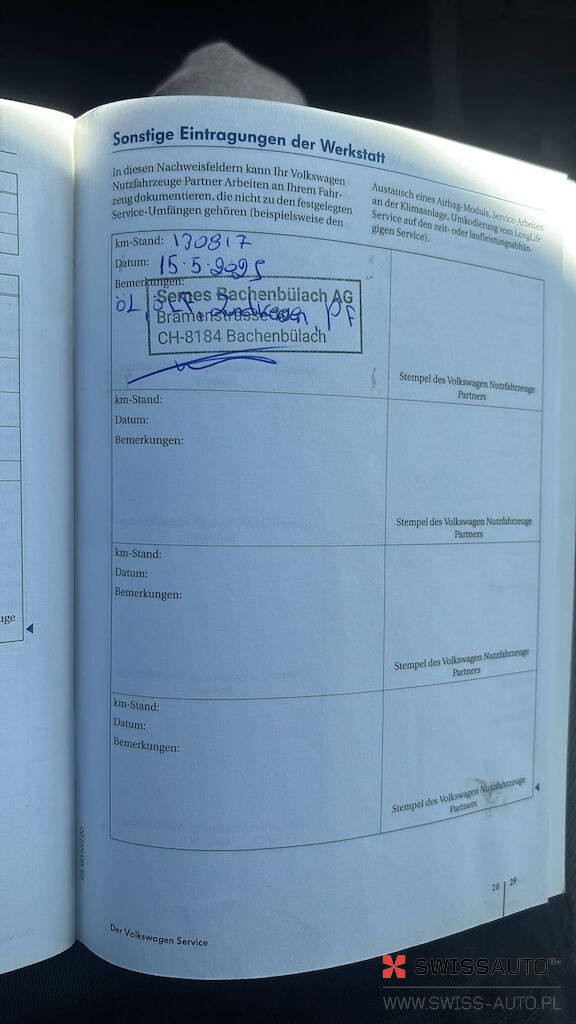 Sonstige Eintragungen der Werkstatt
In diesen Nachweisfeldern kann Ihr Volkswagen
Nutzfahrzeuge Partner Arbeiten an Ihrem Fahr-
zeug dokumentieren, die nicht zu den festgelegten
Service-Umfängen gehören (beispielsweise den
Austausch eines Airbag-Moduls, Service-Arbeiten
an der Klimaanlage, Umkodierung vom LongLife
Service auf den zeit- oder laufleistungsabhän-
gigen Service).
km-Stand: 130817
Datum: 15.5.2025
Bemerkungen:
ÖL, ÖLF, PF
Semes Bachenbülach AG
CH-8184 Bachenbülach
Stempel des Volkswagen Nutzfahrzeuge
Partners
km-Stand:
Datum:
Bemerkungen:
Stempel des Volkswagen Nutzfahrzeuge
Partners
km-Stand:
Datum:
Bemerkungen:
Stempel des Volkswagen Nutzfahrzeuge
Partners
km-Stand:
Datum:
Bemerkungen:
Stempel des Volkswagen Nutzfahrzeuge
Partners
uge
28 29
Der Volkswagen Service
SWISSAUTO
WWW.SWISS-AUTO.PL